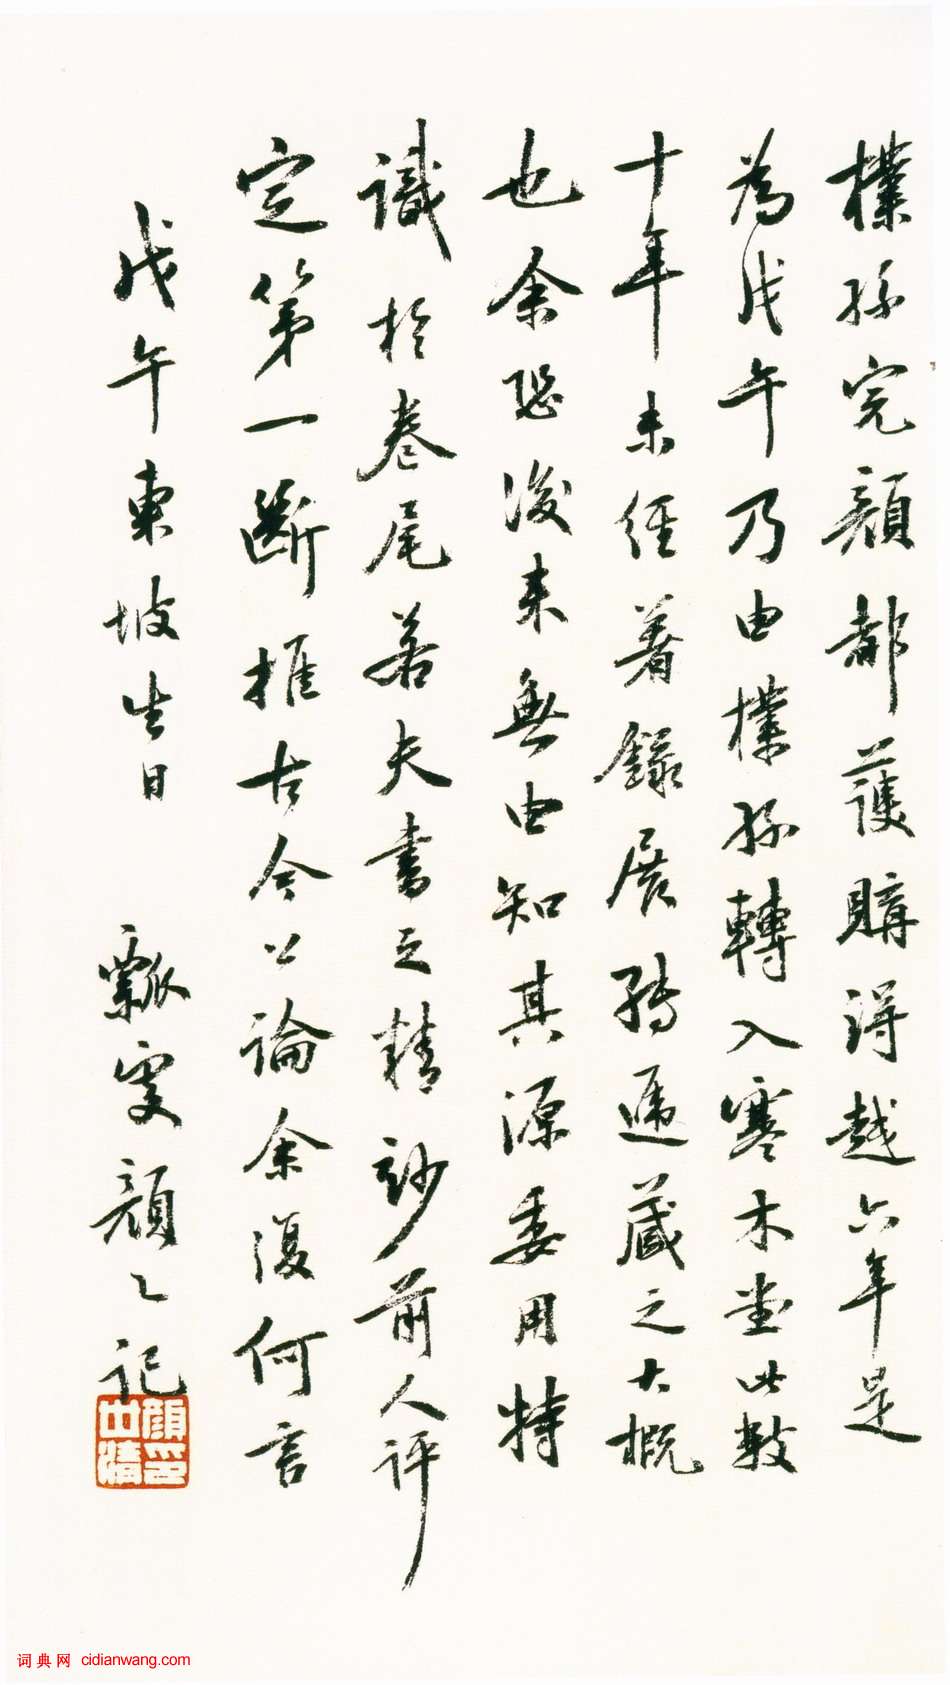 樸孫完顏都護購得越六年是
為戊午乃由樸孫轉入寒木堂此數
十年未經著錄展轉遞藏之大概
也余恐後來無由知其源委用特
識於卷尾若夫書之精妙前人評
定第一斷推古今公論余復何言
戊午東坡生日 瓢叟顏世清記
顏世清印
词典网 cidianwang.com